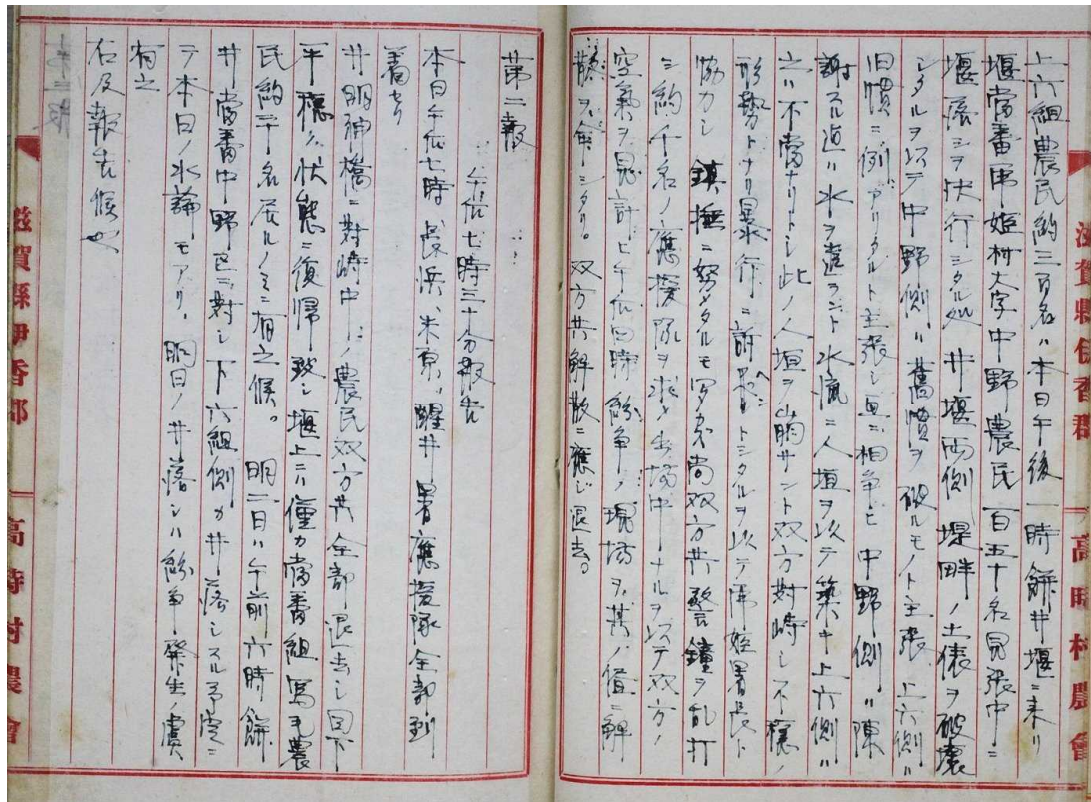 上六組農民約三百名ハ本日午後一時餅井堰ニ来リ
堰當番虎姫村大字中野農民一百五十名見張中ニ
堰落シヲ決行シタル処井堰両側堤畔ノ土俵ヲ破壊
シタルヲ以テ中野側ハ舊慣ヲ破ルモノト主張 上六側ハ
旧慣ニ例アリタルト主張シ互ニ相争ヒ 中野側ハ陳
謝スル迠ハ水ヲ遣ラント水流ニ人垣ヲ以テ築キ上六側ハ
之ハ不當ナリトシ此ノ人垣ヲ崩サント双方対峙シ不穏ノ
形勢トナリ暴行ニ訴ヘントシタルヲ以テ虎姫署長ト
協力シ 鎮撫ニ努メタルモ 尚双方共警鐘ヲ乱打
シ約千名ノ應援隊ヲ求メ出場中ナルヲ以テ双方ノ
空氣ヲ見計ヒ午后四時紛争ノ現場ヲ其ノ侭ニ解
散ヲ命シタリ。双方共解散ニ應ジ退去。
第二報
午后七時三十分報告
本日午后七時長浜、米原、醒井署應援隊全部到
着セリ
井明神橋ニ対峙中ノ農民双方共全部退去シ目下
平穏ノ状態ニ復帰致シ堰上ニハ僅カ當番組馬毛農
民約二十名居ルノミニ有之候。 明一日ハ午前六時餅
井當番中野区ニ対シ下六組側カ井落シスル予定ニ
テ本日ノ水論モアリ、明日ノ井落シハ紛争発生ノ虞
有之
右及報告候也
第三報
滋賀縣伊香郡 高時村農會
滋賀縣伊香郡 高時村農會